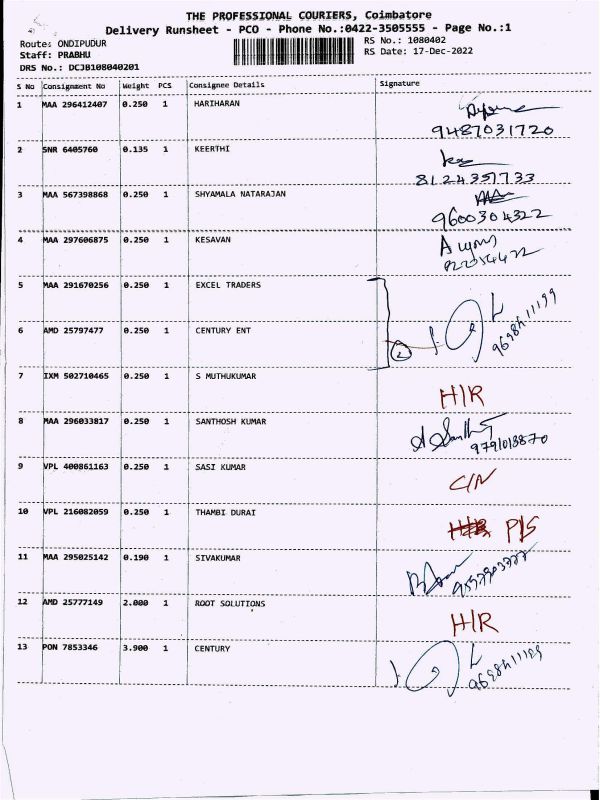 THE PROFESSIONAL COURIERS, Coimbatore
Delivery Runsheet - PCO - Phone No.:0422-3505555 - Page No.:1
Route: ONDIPUDUR
RS No.: 1080402
Staff: PRABHU
RS Date: 17-Dec-2022
DRS No.: DCJB108040201
S No Consignment No Weight PCS Consignee Details Signature
1 MAA 296412407 0.250 1 HARIHARAN
9487031720
2 SNR 6405760 0.135 1 KEERTHI
8124357733
3 MAA 567398868 0.250 1 SHYAMALA NATARAJAN
9600304322
4 MAA 297606875 0.250 1 KESAVAN
5 MAA 291670256 0.250 1 EXCEL TRADERS
6 AMD 25797477 0.250 1 CENTURY ENT
2
9698411199
7 IXM 502710465 0.250 1 S MUTHUKUMAR
H/R
8 MAA 296033817 0.250 1 SANTHOSH KUMAR
9791018870
9 VPL 400861163 0.250 1 SASI KUMAR
C/N
10 VPL 216082059 0.250 1 THAMBI DURAI
P/S
11 MAA 295025142 0.190 1 SIVAKUMAR
12 AMD 25777149 2.000 1 ROOT SOLUTIONS
H/R
13 PON 7853346 3.900 1 CENTURY
9698411199